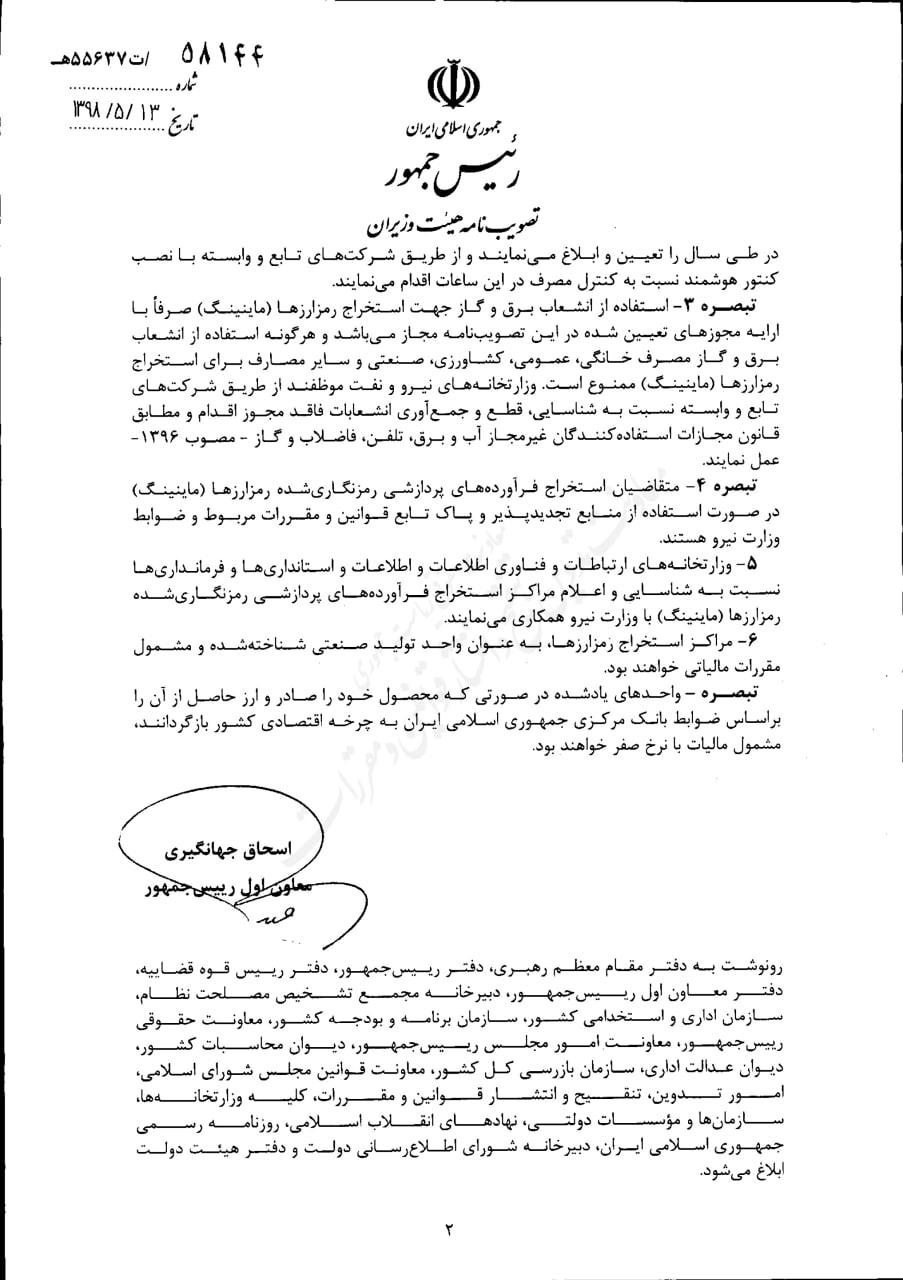 ۵۸۱۴۴ /ت۵۵۶۳۷هـ
شماره
تاریخ ۱۳۹۸/۵/۱۳
جمهوری اسلامی ایران
رئیس جمهور
تصویب نامه هیئت وزیران
در طی سال را تعیین و ابلاغ می‌نمایند و از طریق شرکت‌های تابع و وابسته با نصب
کنتور هوشمند نسبت به کنترل مصرف در این ساعات اقدام می‌نمایند.
تبصره ۳- استفاده از انشعاب برق و گاز جهت استخراج رمزارزها (ماینینگ) صرفاً با
ارایه مجوزهای تعیین شده در این تصویب‌نامه مجاز می‌باشد و هرگونه استفاده از انشعاب
برق و گاز مصرف خانگی، عمومی، کشاورزی، صنعتی و سایر مصارف برای استخراج
رمزارزها (ماینینگ) ممنوع است. وزارتخانه‌های نیرو و نفت موظفند از طریق شرکت‌های
تابع و وابسته نسبت به شناسایی، قطع و جمع‌آوری انشعابات فاقد مجوز اقدام و مطابق
قانون مجازات استفاده‌کنندگان غیرمجاز آب و برق، تلفن، فاضلاب و گاز - مصوب ۱۳۹۶-
عمل نمایند.
تبصره ۴- متقاضیان استخراج فرآورده‌های پردازشی رمزنگاری‌شده رمزارزها (ماینینگ)
در صورت استفاده از منابع تجدیدپذیر و پاک تابع قوانین و مقررات مربوط و ضوابط
وزارت نیرو هستند.
۵- وزارتخانه‌های ارتباطات و فناوری اطلاعات و اطلاعات و استانداری‌ها و فرمانداری‌ها
نسبت به شناسایی و اعلام مراکز استخراج فرآورده‌های پردازشی رمزنگاری‌شده
رمزارزها (ماینینگ) با وزارت نیرو همکاری می‌نمایند.
۶- مراکز استخراج رمزارزها، به عنوان واحد تولید صنعتی شناخته‌شده و مشمول
مقررات مالیاتی خواهند بود.
تبصره - واحدهای یادشده در صورتی که محصول خود را صادر و ارز حاصل از آن را
براساس ضوابط بانک مرکزی جمهوری اسلامی ایران به چرخه اقتصادی کشور بازگردانند،
مشمول مالیات با نرخ صفر خواهند بود.
اسحاق جهانگیری
معاون اول رییس‌جمهور
رونوشت به دفتر مقام معظم رهبری، دفتر رییس‌جمهور، دفتر رییس قوه قضاییه،
دفتر معاون اول رییس‌جمهور، دبیرخانه مجمع تشخیص مصلحت نظام،
سازمان اداری و استخدامی کشور، سازمان برنامه و بودجه کشور، معاونت حقوقی
رییس‌جمهور، معاونت امور مجلس رییس‌جمهور، دیوان محاسبات کشور،
دیوان عدالت اداری، سازمان بازرسی کل کشور، معاونت قوانین مجلس شورای اسلامی،
امور تدوین، تنقیح و انتشار قوانین و مقررات، کلیه وزارتخانه‌ها،
سازمان‌ها و مؤسسات دولتی، نهادهای انقلاب اسلامی، روزنامه رسمی
جمهوری اسلامی ایران، دبیرخانه شورای اطلاع‌رسانی دولت و دفتر هیئت دولت
ابلاغ می‌شود.
۲